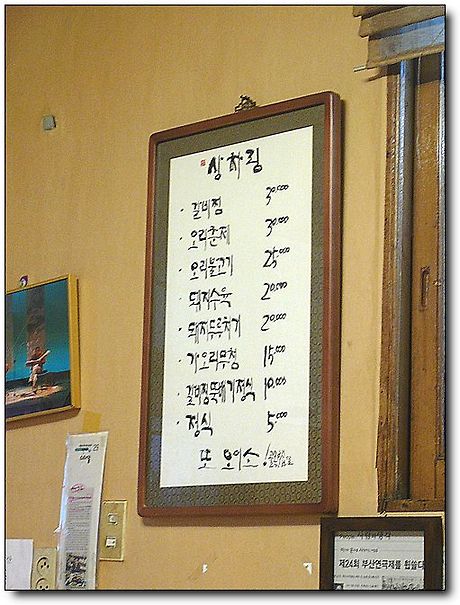 상차림
· 갈비찜 30.000
· 오리훈제 30.000
· 오리불고기 25.000
· 돼지수육 20.000
· 돼지두루치기 20.000
· 가오리무침 15.000
· 갈비찜뚝배기정식 10.000
· 정식 5.000
또 오이소!
제24회 부산연극제를 휩쓸다